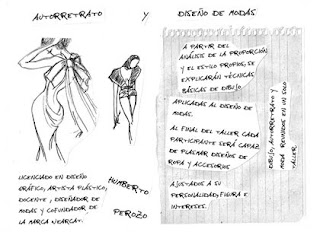 AUTORRETRATO Y DISEÑO DE MODAS
A PARTIR DEL
ANÁLISIS DE LA PROPORCIÓN
Y EL ESTILO PROPIOS, SE
EXPLICARÁN TÉCNICAS
BÁSICAS DE DIBUJO
APLICADAS AL DISEÑO DE
MODAS.
AL FINAL DEL TALLER CADA
PARTICIPANTE SERÁ CAPAZ
DE PLASMAR DISEÑOS DE
ROPA Y ACCESORIOS
AJUSTADOS A SU
PERSONALIDAD, FIGURA E
INTERESES.
DIBUJO, AUTORRETRATO Y
MODA REUNIDOS EN UN SOLO
TALLER
LICENCIADO EN DISEÑO
GRÁFICO, ARTISTA PLÁSTICO,
DOCENTE, DISEÑADOR DE
MODAS Y COFUNDADOR DE
LA MARCA
HUMBERTO
PEROZO